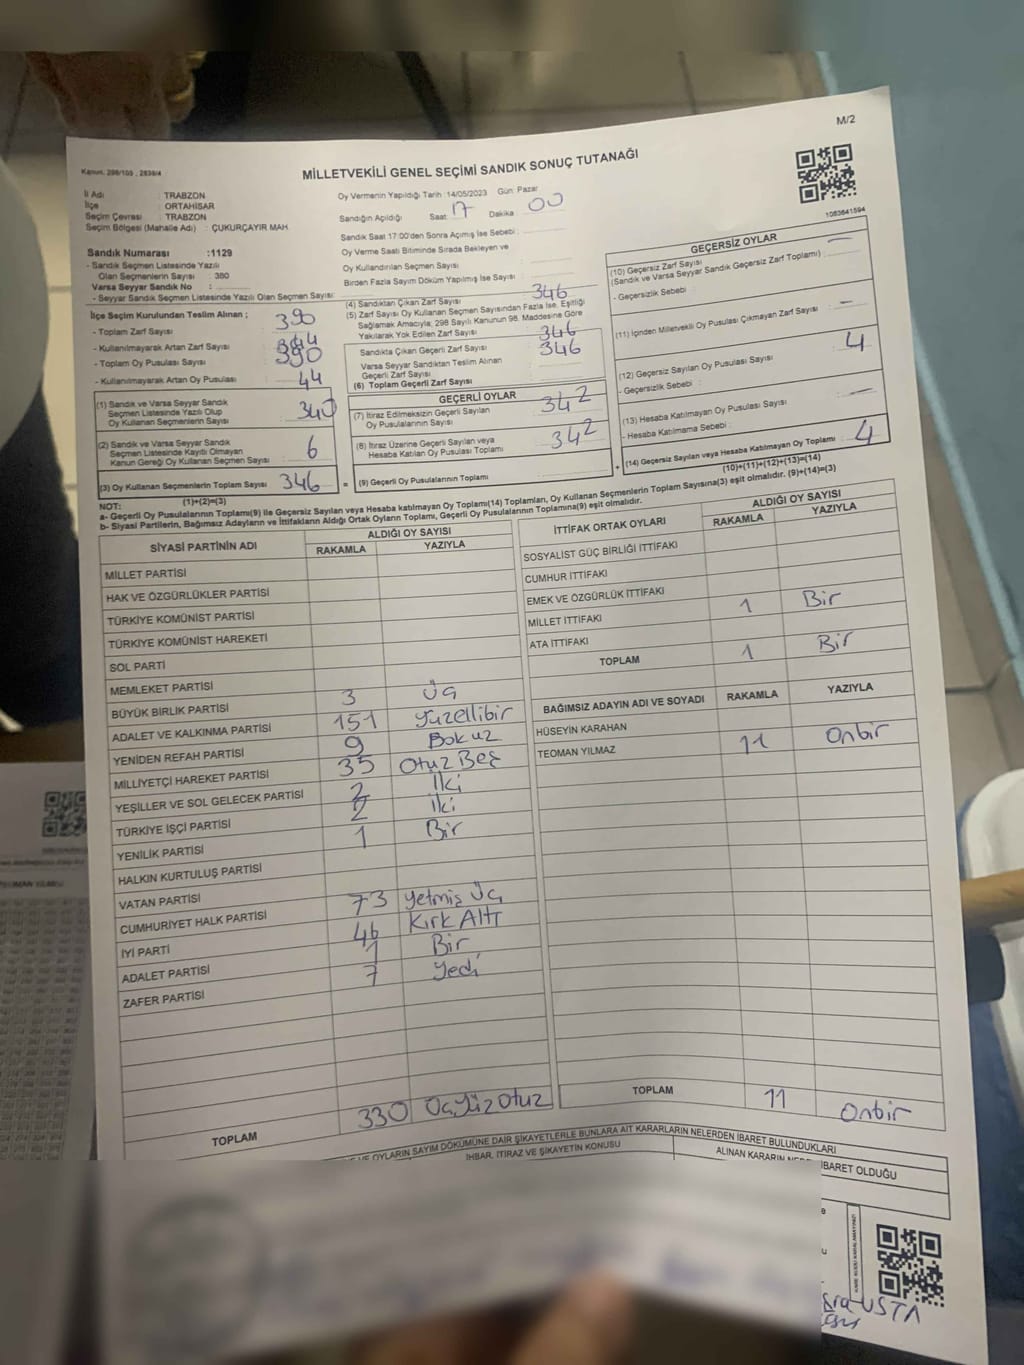 M/2
Kanun. 298/105 , 2839/4
MİLLETVEKİLİ GENEL SEÇİMİ SANDIK SONUÇ TUTANAĞI
İl Adı : TRABZON
İlçe : ORTAHİSAR
Seçim Çevresi : TRABZON
Seçim Bölgesi (Mahalle Adı) : ÇUKURÇAYIR MAH.
Sandık Numarası :1129
- Sandık Seçmen Listesinde Yazılı
Olan Seçmenlerin Sayısı : 380
Varsa Seyyar Sandık No :
- Seyyar Sandık Seçmen Listesinde Yazılı Olan Seçmen Sayısı:
Oy Vermenin Yapıldığı Tarih : 14/05/2023 Gün: Pazar
Sandığın Açıldığı Saat 17 Dakika 00
Sandık Saat 17:00'den Sonra Açılmış İse Sebebi :
Oy Verme Saati Bitiminde Sırada Bekleyen ve
Oy Kullandırılan Seçmen Sayısı :
Birden Fazla Sayım Döküm Yapılmış İse Sayısı :
1083641594
İlçe Seçim Kurulundan Teslim Alınan ;
- Toplam Zarf Sayısı : 390
- Kullanılmayarak Artan Zarf Sayısı :
- Toplam Oy Pusulası Sayısı : 390
- Kullanılmayarak Artan Oy Pusulası : 44
(1) Sandık ve Varsa Seyyar Sandık
Seçmen Listesinde Yazılı Olup
Oy Kullanan Seçmenlerin Sayısı : 340
(2) Sandık ve Varsa Seyyar Sandık
Seçmen Listesinde Kayıtlı Olmayan
Kanun Gereği Oy Kullanan Seçmen Sayısı : 6
(3) Oy Kullanan Seçmenlerin Toplam Sayısı : 346
(1)+(2)=(3)
(4) Sandıktan Çıkan Zarf Sayısı : 346
(5) Zarf Sayısı Oy Kullanan Seçmen Sayısından Fazla İse, Eşitliği
Sağlamak Amacıyla; 298 Sayılı Kanunun 98. Maddesine Göre
Yakılarak Yok Edilen Zarf Sayısı :
Sandıkta Çıkan Geçerli Zarf Sayısı : 346
346
Varsa Seyyar Sandıktan Teslim Alınan
Geçerli Zarf Sayısı :
(6) Toplam Geçerli Zarf Sayısı :
GEÇERLİ OYLAR
(7) İtiraz Edilmeksizin Geçerli Sayılan
Oy Pusulalarının Sayısı : 342
(8) İtiraz Üzerine Geçerli Sayılan veya
Hesaba Katılan Oy Pusulası Toplamı : 342
= (9) Geçerli Oy Pusulalarının Toplamı :
GEÇERSİZ OYLAR
(10) Geçersiz Zarf Sayısı —
(Sandık ve Varsa Seyyar Sandık Geçersiz Zarf Toplamı) :
- Geçersizlik Sebebi :
(11) İçinden Milletvekili Oy Pusulası Çıkmayan Zarf Sayısı : —
(12) Geçersiz Sayılan Oy Pusulası Sayısı : 4
- Geçersizlik Sebebi :
(13) Hesaba Katılmayan Oy Pusulası Sayısı : —
- Hesaba Katılmama Sebebi :
+ (14) Geçersiz Sayılan veya Hesaba Katılmayan Oy Toplamı : 4
(10)+(11)+(12)+(13)=(14)
NOT:
a- Geçerli Oy Pusulalarının Toplamı(9) ile Geçersiz Sayılan veya Hesaba katılmayan Oy Toplamı(14) Toplamları, Oy Kullanan Seçmenlerin Toplam Sayısına(3) eşit olmalıdır. (9)+(14)=(3)
b- Siyasi Partilerin, Bağımsız Adayların ve İttifakların Aldığı Ortak Oyların Toplamı, Geçerli Oy Pusulalarının Toplamına(9) eşit olmalıdır.
SİYASİ PARTİNİN ADI ALDIĞI OY SAYISI
RAKAMLA YAZIYLA
MİLLET PARTİSİ
HAK VE ÖZGÜRLÜKLER PARTİSİ
TÜRKİYE KOMÜNİST PARTİSİ
TÜRKİYE KOMÜNİST HAREKETİ
SOL PARTİ
MEMLEKET PARTİSİ
BÜYÜK BİRLİK PARTİSİ 3 Üç
ADALET VE KALKINMA PARTİSİ 151 Yüzellibir
YENİDEN REFAH PARTİSİ 9 Dokuz
MİLLİYETÇİ HAREKET PARTİSİ 35 Otuz Beş
YEŞİLLER VE SOL GELECEK PARTİSİ 2 İki
TÜRKİYE İŞÇİ PARTİSİ 2 İki
YENİLİK PARTİSİ 1 Bir
HALKIN KURTULUŞ PARTİSİ
VATAN PARTİSİ
CUMHURİYET HALK PARTİSİ 73 Yetmiş Üç
İYİ PARTİ 46 Kırk Altı
ADALET PARTİSİ 1 Bir
ZAFER PARTİSİ 7 Yedi
TOPLAM 330 Üçyüz Otuz
İTTİFAK ORTAK OYLARI ALDIĞI OY SAYISI
RAKAMLA YAZIYLA
SOSYALİST GÜÇ BİRLİĞİ İTTİFAKI
CUMHUR İTTİFAKI
EMEK VE ÖZGÜRLÜK İTTİFAKI
MİLLET İTTİFAKI 1 Bir
ATA İTTİFAKI
TOPLAM 1 Bir
BAĞIMSIZ ADAYIN ADI VE SOYADI RAKAMLA YAZIYLA
HÜSEYİN KARAHAN
TEOMAN YILMAZ 11 Onbir
TOPLAM 11 Onbir
VE OYLARIN SAYIM DÖKÜMÜNE DAİR ŞİKAYETLERLE BUNLARA AİT KARARLARIN NELERDEN İBARET BULUNDUKLARI
İHBAR, İTİRAZ VE ŞİKAYETİN KONUSU
ALINAN KARARIN İBARET OLDUĞU
USTA